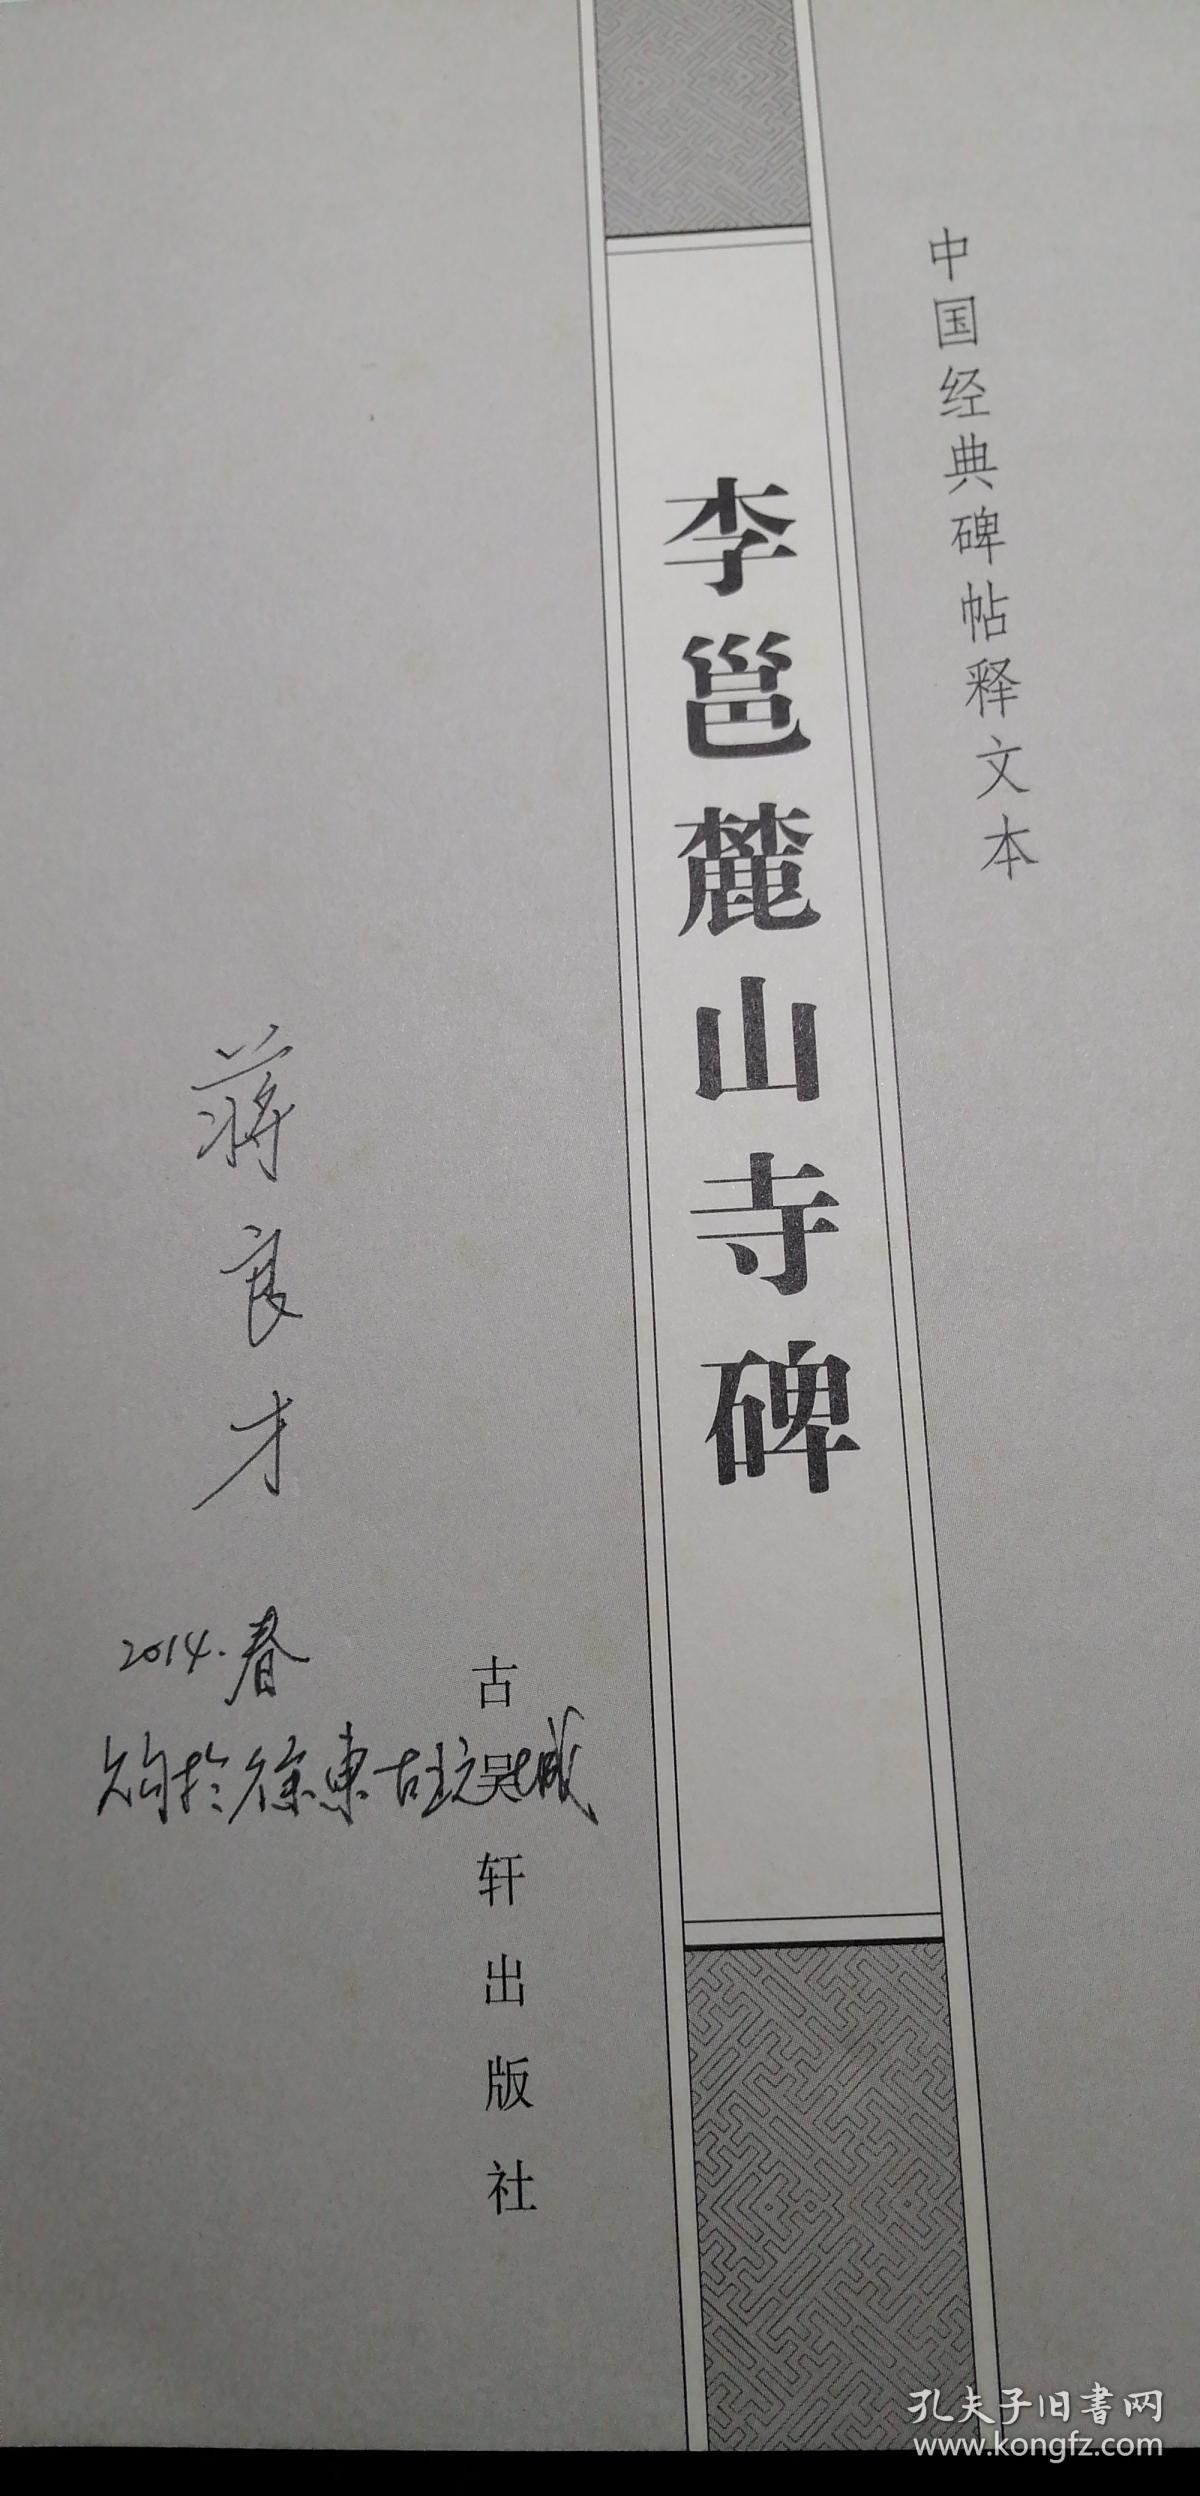 中国经典碑帖释文本
李邕麓山寺碑
古吴轩出版社
蒋良才
2014.春
购於徐東古玩城
孔夫子旧書网
www.kongfz.com